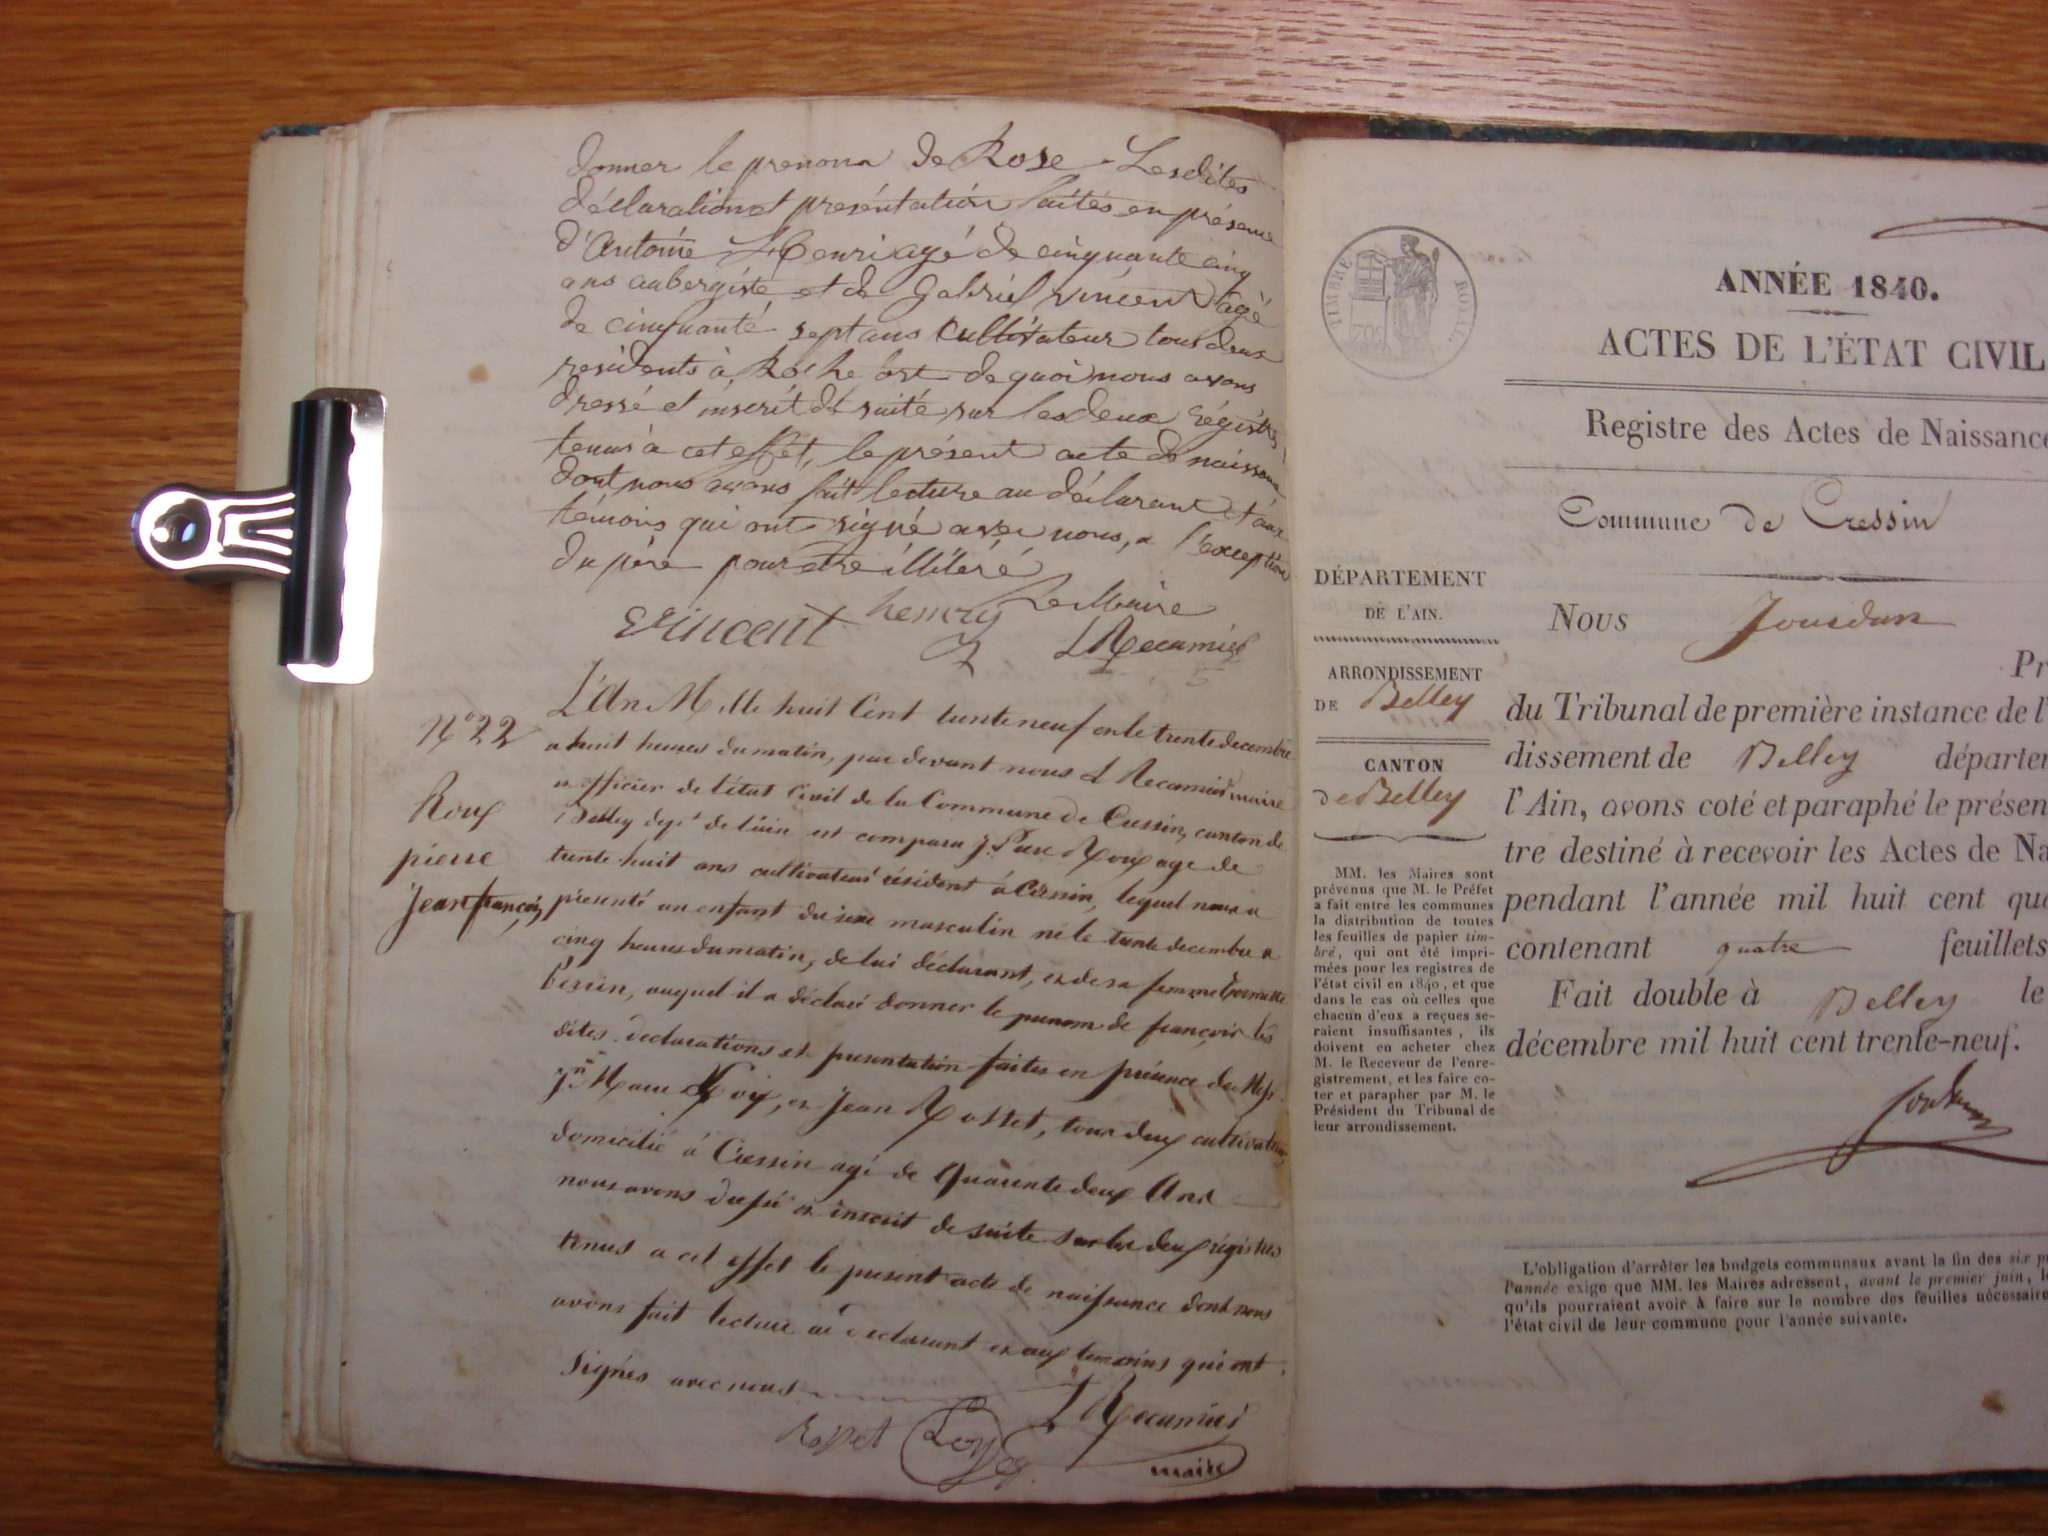 donner le prenom de Rose - Lesdites
déclaration et présentation faites en présence
d'Antoine Henri agé de cinquante cinq
ans aubergiste et de Gabriel Vincent agé
de cinquante sept ans cultivateur tous deux
résidents à Rochefort de quoi nous avons
dressé et inscrit de suite sur les deux régistres
tenus à cet effet, le présent acte de naissance
dont nous avons fait lecture au déclarant et aux
témoins qui ont signé avec nous, a l'exception
du père pour etre illiteré
Le Maire
Vincent henry L Recamier
N° 22
Roux
pierre
Jean françois
L'An Mille huit Cent trente neuf et le trente decembre
a huit heures du matin, par devant nous L Recamier maire
et officier de l'état Civil de la Commune de Cressin, canton de
Belley dept de l'ain est comparu Roux age de
trente huit ans cultivateur résident à Cressin, lequel nous a
présenté un enfant du sexe masculin né le trente decembre a
cinq heures du matin, de lui déclarant, et de sa femme
auquel il a déclaré donner le prenom de françois les
dites declarations et presentation faites en présence de
Marc et Jean Rosset, tous deux cultivateurs
domicilié à Cressin agé de quarente deux Ans
nous avons dressé et inscrit de suite sur les deux régistres
tenus a cet effet le present acte de naissance dont nous
avons fait lecture au declarant et aux temoins qui ont
signés avec nous
L Recamier
Rosset
maire
TIMBRE ROYAL
70c
ANNÉE 1840.
ACTES DE L'ÉTAT CIVIL
Registre des Actes de Naissance
Commune de Cressin
DÉPARTEMENT
DE L'AIN.
ARRONDISSEMENT
DE Belley
CANTON
de Belley
MM. les Maires sont
prévenus que M. le Préfet
a fait entre les communes
la distribution de toutes
les feuilles de papier tim-
bré, qui ont été impri-
mées pour les registres de
l'état civil en 1840, et que
dans le cas où celles que
chacun d'eux a reçues se-
raient insuffisantes, ils
doivent en acheter chez
M. le Receveur de l'enre-
gistrement, et les faire co-
ter et parapher par M. le
Président du Tribunal de
leur arrondissement.
Nous Jourdan
Pr
du Tribunal de première instance de l'
dissement de Belley départem
l'Ain, avons coté et paraphé le présen
tre destiné à recevoir les Actes de Na
pendant l'année mil huit cent qua
contenant quatre feuillets
Fait double à Belley le
décembre mil huit cent trente-neuf.
Jourdan
L'obligation d'arrêter les budgets communaux avant la fin des six pr
l'année exige que MM. les Maires adressent, avant le premier juin, l
qu'ils pourraient avoir à faire sur le nombre des feuilles nécessaire
l'état civil de leur commune pour l'année suivante.